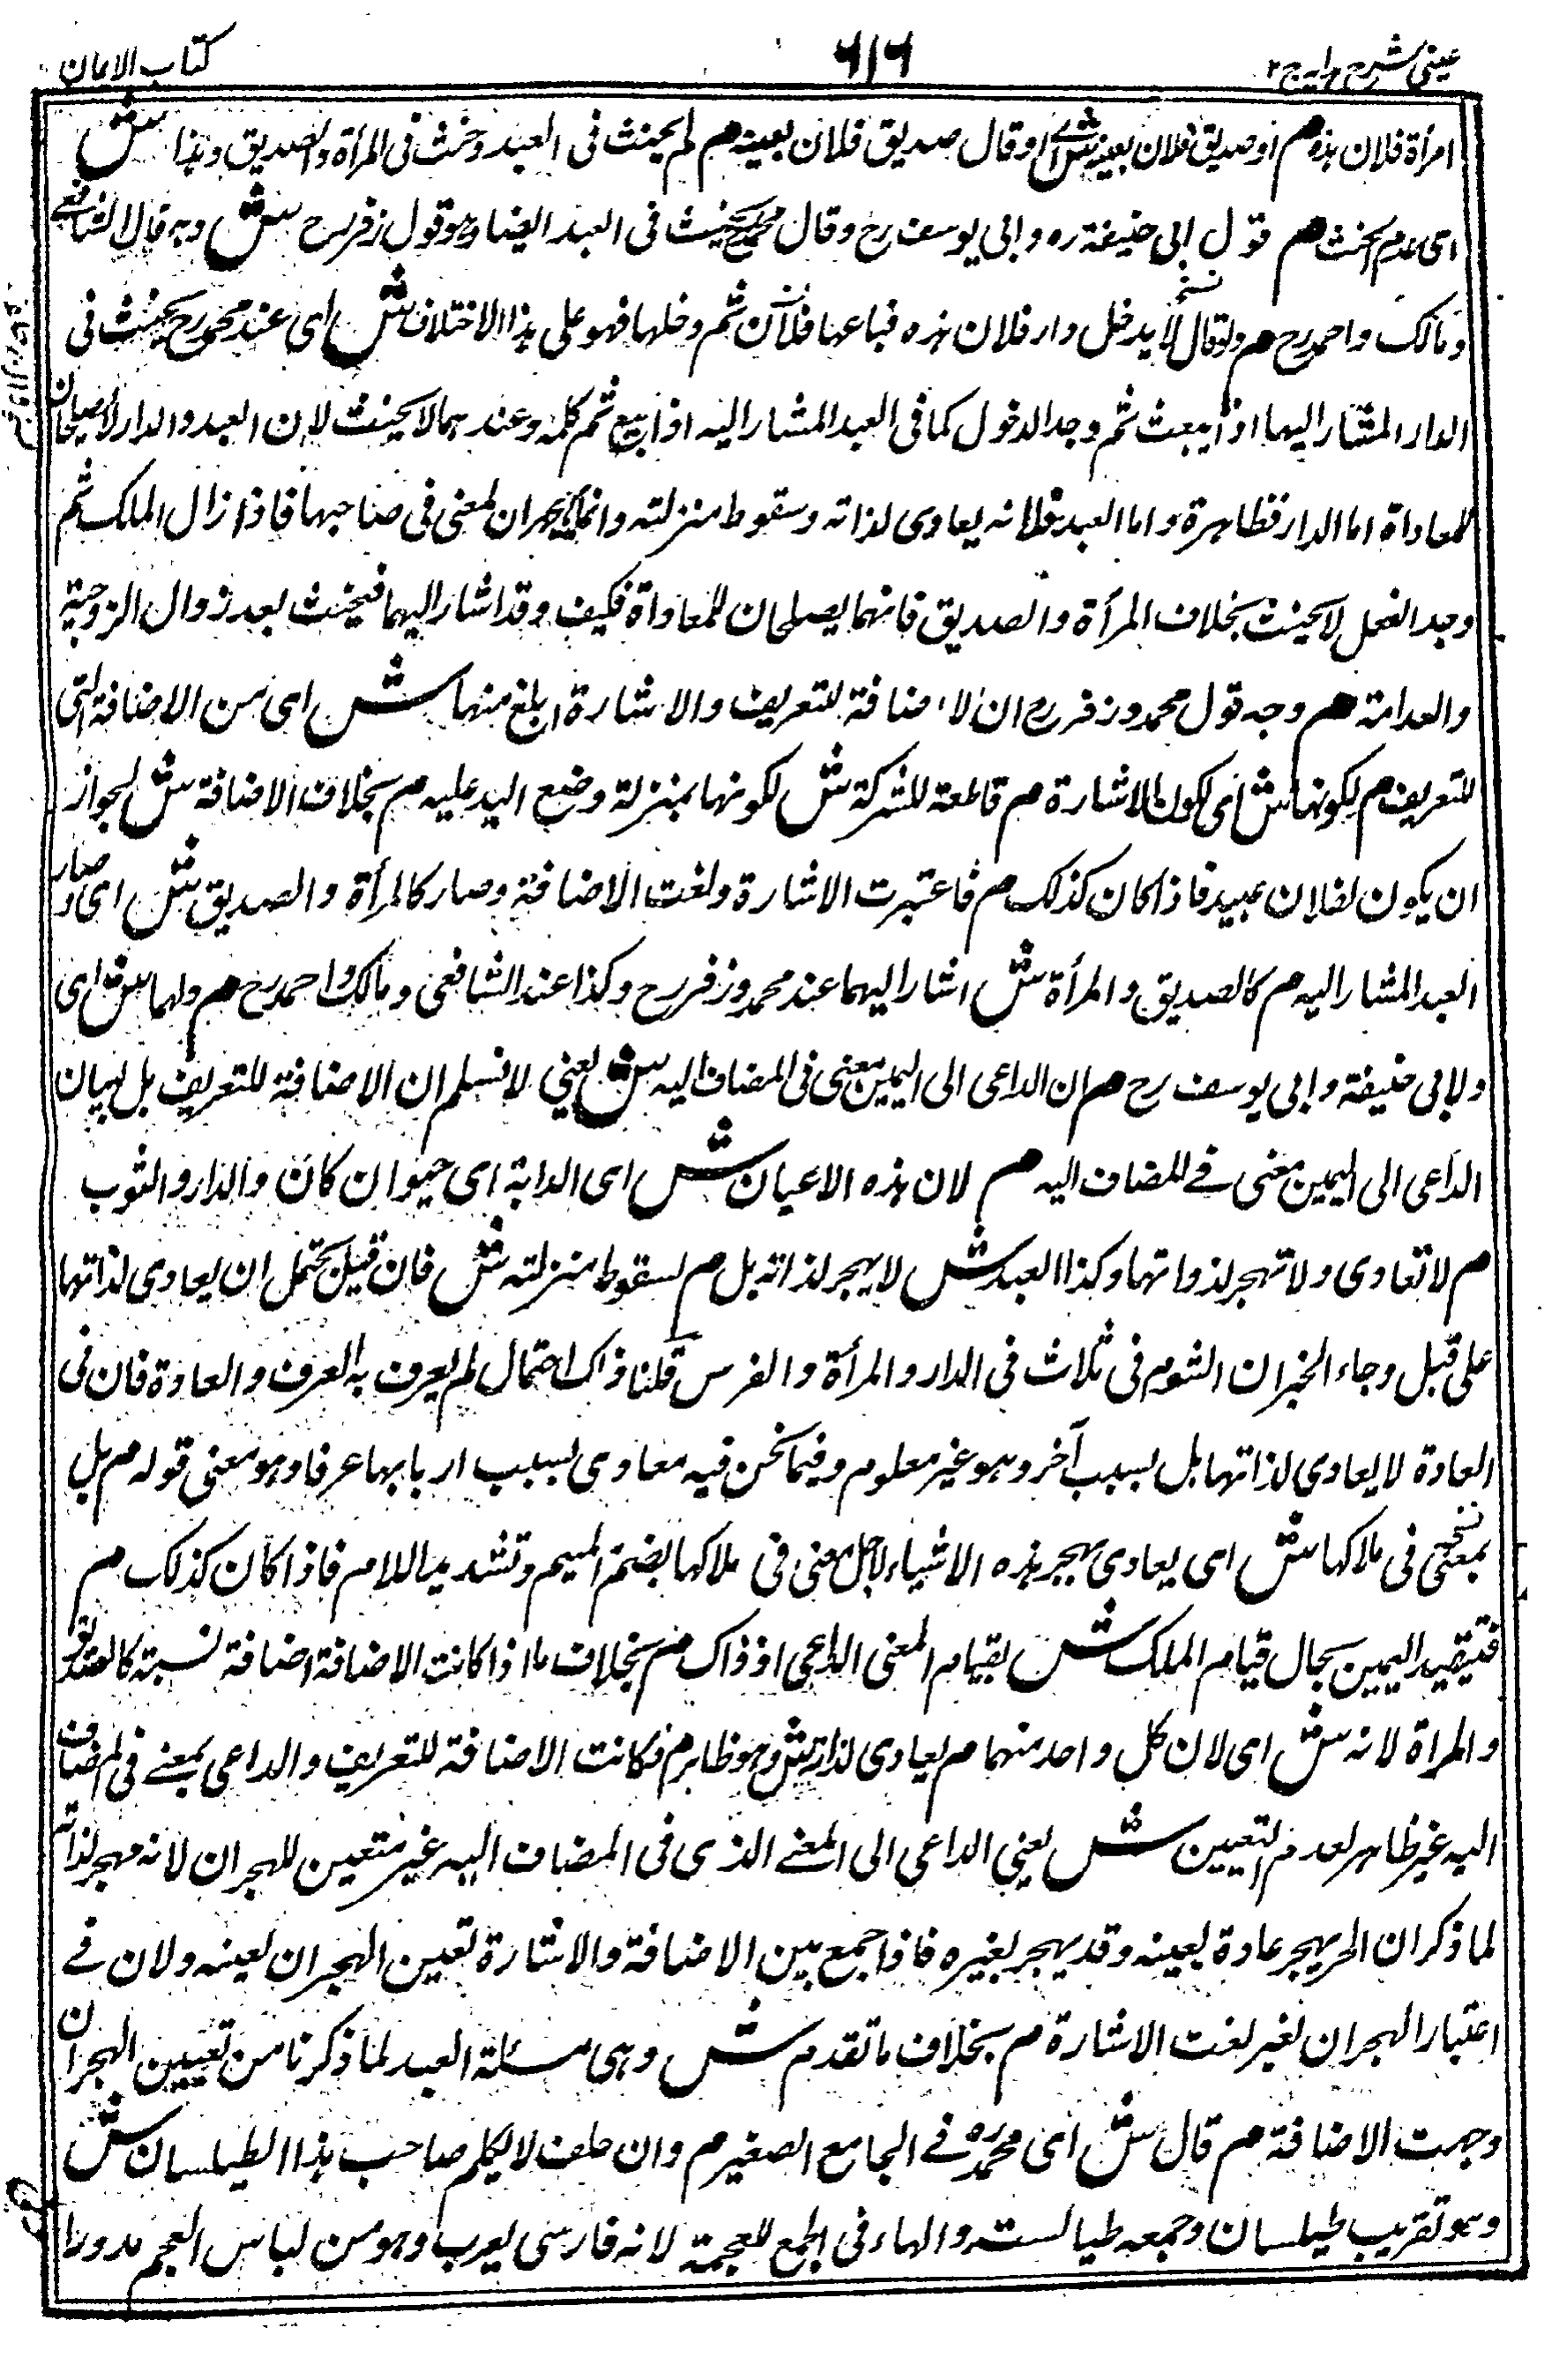 عینی شرح ہدایہ ج ۲
۶۱۶
کتاب الایمان
امرأة فلان ہذہ م او صدیق فلان بعینہ ش ای او قال صدیق فلان بعینہ م لم یحنث فی العبد وحنث فی المرأة والصدیق وہذا ش
ای عدم الحنث م قول ابی حنیفة رہ وابی یوسف رح وقال محمد رح یحنث فی العبد ایضا وہو قول زفر رح ش وبہ قال الشافعی
ومالک واحمد رح م ولو قال لا یدخل دار فلان ہذہ فباعہا فلان ثم دخلہا فہو علی ہذا الاختلاف ش ای عند محمد رح یحنث فی
الدار المشار الیہا اذا بیعت ثم وجد الدخول کما فی العبد المشار الیہ اذا بیع ثم کلمہ وعندہما لا یحنث لان العبد والدار لا یصلحان
للمعاداة اما الدار فظاہرة واما العبد فلانہ یعادی لذاتہ وسقوط منزلتہ وانما یہجران لمعنی فی صاحبہا فاذا زال الملک ثم
وجد الفعل لا یحنث بخلاف المرأة والصدیق فانہما یصلحان للمعاداة فکیف وقد اشار الیہما فیحنث بعد زوال الزوجیة
والعدامة م وجہ قول محمد وزفر رح ان الاضافة للتعریف والاشارة ابلغ منہا ش ای من الاضافة التی
للتعریف م لکونہا ش ای لکون الاشارة م قاطعة للشرکة ش لکونہا بمنزلة وضع الید علیہ م بخلاف الاضافة ش لجواز
ان یکون لفلان عبید فاذا کان کذلک م فاعتبرت الاشارة ولغت الاضافة وصار کالمرأة والصدیق ش ای وصار
العبد المشار الیہ م کالصدیق والمرأة ش اشار الیہما عند محمد وزفر رح وکذا عند الشافعی ومالک واحمد رح م ولہما ش ای
ولابی حنیفة وابی یوسف رح م ان الداعی الی الیمین معنی فی المضاف الیہ ش یعنی لا نسلم ان الاضافة للتعریف بل لبیان
الداعی الی الیمین معنی فے المضاف الیہ م لان ہذہ الاعیان ش ای الدابة ای حیوان کان والدار والثوب
م لا تعادی ولا تہجر لذواتہا وکذا العبد ش لا یہجر لذاتہ بل م لسقوط منزلتہ ش فان قیل یحتمل ان یعادی لذاتہا
علی قبل وجاء الخبر ان الشوم فی ثلاث فی الدار والمرأة والفرس قلنا ذاک احتمال لم یعرف بہ العرف والعادة فان فی
العادة لا یعادی لذاتہا بل بسبب آخر وہو غیر معلوم وفیما نحن فیہ معادی بسبب اربابہا عرفا وہو معنی قولہ م بل
بمعنی فی ملاکہا ش ای یعادی یہجر ہذہ الاشیاء لاجل معنی فی ملاکہا بضم المیم وتشدید اللام فاذا کان کذلک م
فتیقید الیمین بحال قیام الملک ش لقیام المعنی الداعی اذ ذاک م بخلاف ما اذا کانت الاضافة اضافة نسبة کالصدیق
والمراة لانہ ش ای لان کل واحد منہما م یعادی لذاتہ ش وہو ظاہر م فکانت الاضافة للتعریف والداعی بمعنے فی المضاف
الیہ غیر ظاہر لعدم التعیین ش یعنی الداعی الی المعنے الذی فی المضاف الیہ غیر متعین للہجران لانہ مہجر لذاتہ
لما ذکر ان الحر یہجر عادة بعینہ وقد یہجر بغیرہ فاذا جمع بین الاضافة والاشارة تعین الہجران لعینہ ولان فے
اعتبار الہجران لغیر لغت الاشارة م بخلاف ما تقدم ش وہی مسئلة العبد لما ذکرنا من تعیین الہجران
وجہت الاضافة م قال ش ای محمد رہ فے الجامع الصغیر م وان حلف لا یکلم صاحب ہذا الطیلسان ش
وہو تقریب طیلسان وجمعہ طیالستہ والہاء فی الجمع للعجمة لانہ فارسی یعرب وہو من لباس العجم مدورا